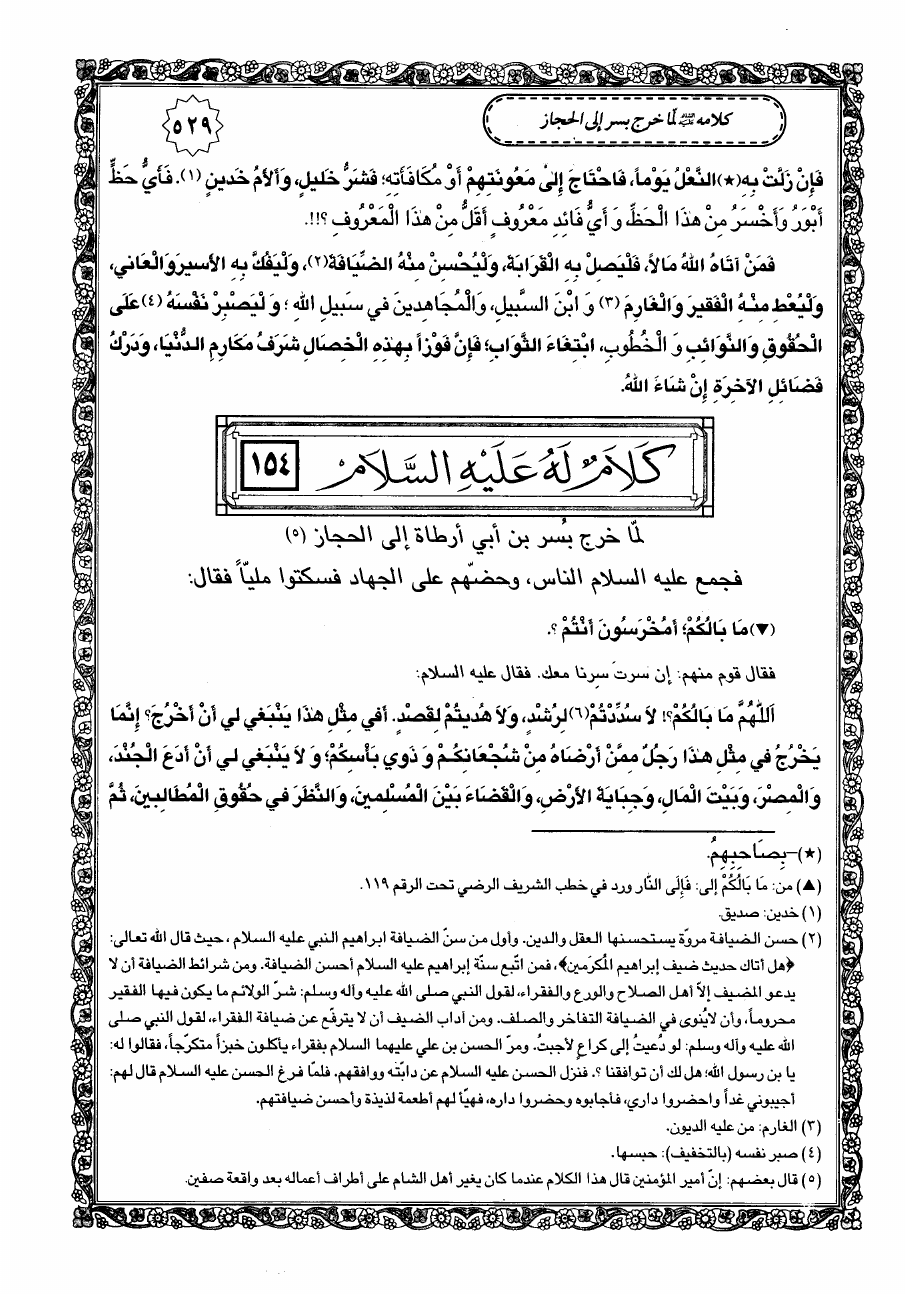 كلامه عليه السلام لمّا خرج بسر إلى الحجاز
٥٢٩
فَإِنْ زَلَّتْ بِهِ(★)النَّعْلُ يَوْماً، فَاحْتَاجَ إِلىٰ مَعُونَتِهِمْ أَوْ مُكَافَأَتِهِ؛ فَشَرُّ خَليلٍ، وَأَلأَمُ خَدينٍ (١). فَأَيُّ حَظٍّ
أَبْوَرُ وَأَخْسَرُ مِنْ هٰذَا الْحَظِّ، وَ أَيُّ فَائِدِ مَعْرُوفٍ أَقَلُّ مِنْ هٰذَا الْمَعْرُوفِ ؟!!.
فَمَنْ آتَاهُ اللّهُ مَالاً، فَلْيَصِلْ بِهِ الْقَرَابَةَ، وَلْيُحْسِنْ مِنْهُ الضِّيَافَةَ(٢)، وَلْيَفُكَّ بِهِ الأَسيرَ وَالْعَاني،
وَلْيُعْطِ مِنْهُ الْفَقيرَ وَالْغَارِمَ (٣) وَ ابْنَ السَّبيلِ، وَالْمُجَاهِدينَ في سَبيلِ اللّهِ ؛ وَ لْيَصْبِرْ نَفْسَهُ (٤) عَلَى
الْحُقُوقِ وَالنَّوَائِبِ وَ الْخُطُوبِ، ابْتِغَاءَ الثَّوَابِ؛ فَإِنَّ فَوْزاً بِهٰذِهِ الْخِصَالِ شَرَفُ مَكَارِمِ الدُّنْيَا، وَدَرْكُ
فَضَائِلِ الآخِرَةِ إِنْ شَاءَ اللّهُ.
كَلَامٌ لَهُ عَلَيْهِ السَّلَامُ ١٥٤
لمّا خرج بُسر بن أبي أرطاة إلى الحجاز (٥)
فجمع عليه السلام الناس، وحضّهم على الجهاد فسكتوا مليّاً فقال:
(▼)مَا بَالُكُمْ؛ أَمُخْرَسُونَ أَنْتُمْ ؟.
فقال قوم منهم: إن سرتَ سِرنا معك. فقال عليه السلام:
اَللّٰهُمَّ مَا بَالُكُمْ؟! لاَ سُدِّدْتُمْ(٦)لِرُشْدٍ، وَلاَ هُديتُمْ لِقَصْدٍ. أَفي مِثْلِ هٰذَا يَنْبَغي لي أَنْ أَخْرُجَ؟ إِنَّمَا
يَخْرُجُ في مِثْلِ هٰذَا رَجُلٌ مِمَّنْ أَرْضَاهُ مِنْ شُجْعَانِكُمْ وَ ذَوي بَأْسِكُمْ؛ وَ لاَ يَنْبَغي لي أَنْ أَدَعَ الْجُنْدَ،
وَالْمِصْرَ، وَبَيْتَ الْمَالِ، وَجِبَايَةَ الأَرْضِ، وَالْقَضَاءَ بَيْنَ الْمُسْلِمينَ، وَالنَّظَرَ في حُقُوقِ الْمُطَالِبينَ، ثُمَّ
(★)–بِصَاحِبِهِمُ.
(▲) من: مَا بَالُكُمْ إلى: فَإِلَى النَّار ورد في خطب الشريف الرضي تحت الرقم ١١٩.
(١) خدين: صديق.
(٢) حسن الضيافة مروّة يستحسنها العقل والدين. وأول من سنّ الضيافة ابراهيم النبي عليه السلام ، حيث قال اللّه تعالى:
﴿هل أتاك حديث ضيف إبراهيم المُكرَمين﴾، فمن اتّبع سنّة إبراهيم عليه السلام أحسن الضيافة. ومن شرائط الضيافة أن لا
يدعو المضيف إلاّ أهل الصلاح والورع والفقراء، لقول النبي صلى اللّه عليه وآله وسلم: شرّ الولائم ما يكون فيها الفقير
محروماً، وأن لايُنوى في الضيافة التفاخر والصلف. ومن آداب الضيف أن لا يترفّع عن ضيافة الفقراء، لقول النبي صلى
اللّه عليه وآله وسلم: لو دُعيتُ إلى كراعٍ لأجبتُ. ومرّ الحسن بن علي عليهما السلام بفقراء يأكلون خبزاً متكرّجاً، فقالوا له:
يا بن رسول اللّه؛ هل لك أن توافقنا ؟. فنزل الحسن عليه السلام عن دابّته ووافقهم. فلمّا فرغ الحسن عليه السلام قال لهم:
أجيبوني غداً واحضروا داري، فأجابوه وحضروا داره، فهيّأ لهم أطعمة لذيذة وأحسن ضيافتهم.
(٣) الغارم: من عليه الديون.
(٤) صبر نفسه (بالتخفيف): حبسها.
(٥) قال بعضهم: إنّ أمير المؤمنين قال هذا الكلام عندما كان يغير أهل الشام على أطراف أعماله بعد واقعة صفين.